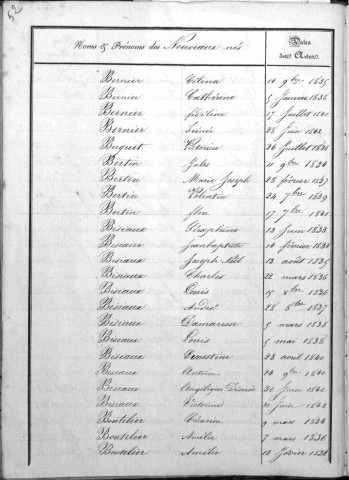 52
Noms & Prénoms des Nouveaux nés
Dates des Actes
Bernier Célena 14 9bre 1835
Bernier Cathérine 5 Janvier 1838
Bernier fidéline 17 Juillet 1840
Bernier Irénée 28 Juin 1842
Buquet Victorine 26 Juillet 1826
Bertin Jules 11 9bre 1834
Bertin Marie Joseph 23 février 1837
Bertin Valentin 24 7bre 1839
Bertin flore 17 7bre 1841
Bisiaux Séraphine 13 Juin 1833
Bisiaux Jean baptiste 14 février 1834
Bisiaux Joseph Abel 13 août 1835
Bisiaux Charles 22 mars 1836
Bisiaux Louis 15 Xbre 1836
Bisiaux André 28 8bre 1837
Bisiaux Damaresse 5 mars 1838
Bisiaux Louis 5 mai 1838
Bisiaux Ernestine 23 avril 1840
Bisiaux Antoine 24 9bre 1840
Bisiaux Angélique Désirée 30 Juin 1842
Bisiaux Victorine Juin 1842
Boutelier Césarine 9 mars 1834
Boutelier Amélie 7 mars 1836
Boutelier Amélie 13 février 1838